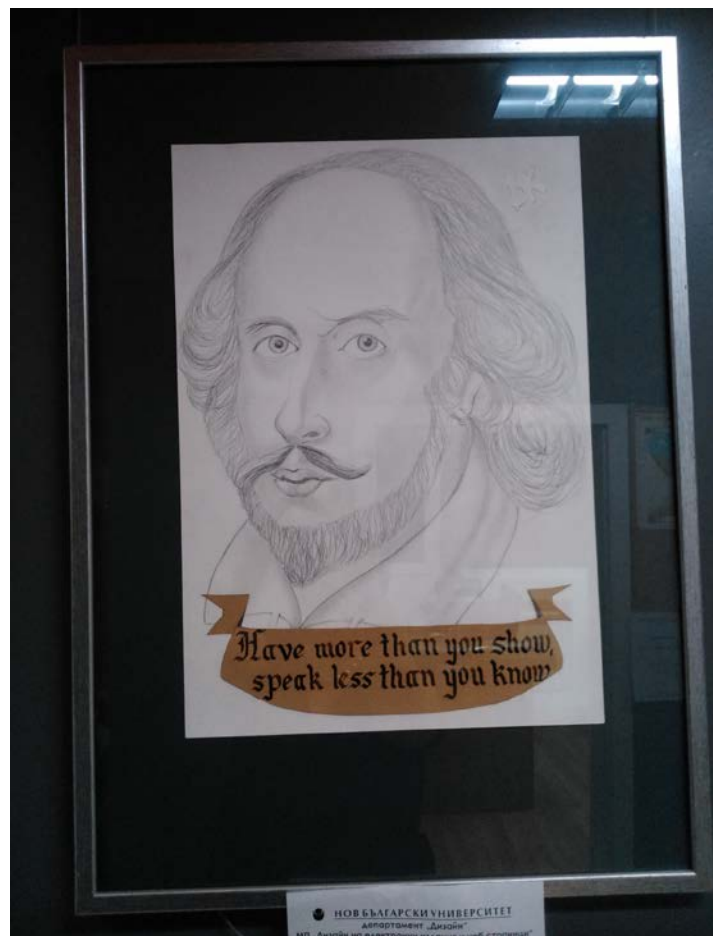 Have more than you show,
speak less than you know
НОВ БЪЛГАРСКИ УНИВЕРСИТЕТ
департамент „Дизайн“
МП „Дизайн на